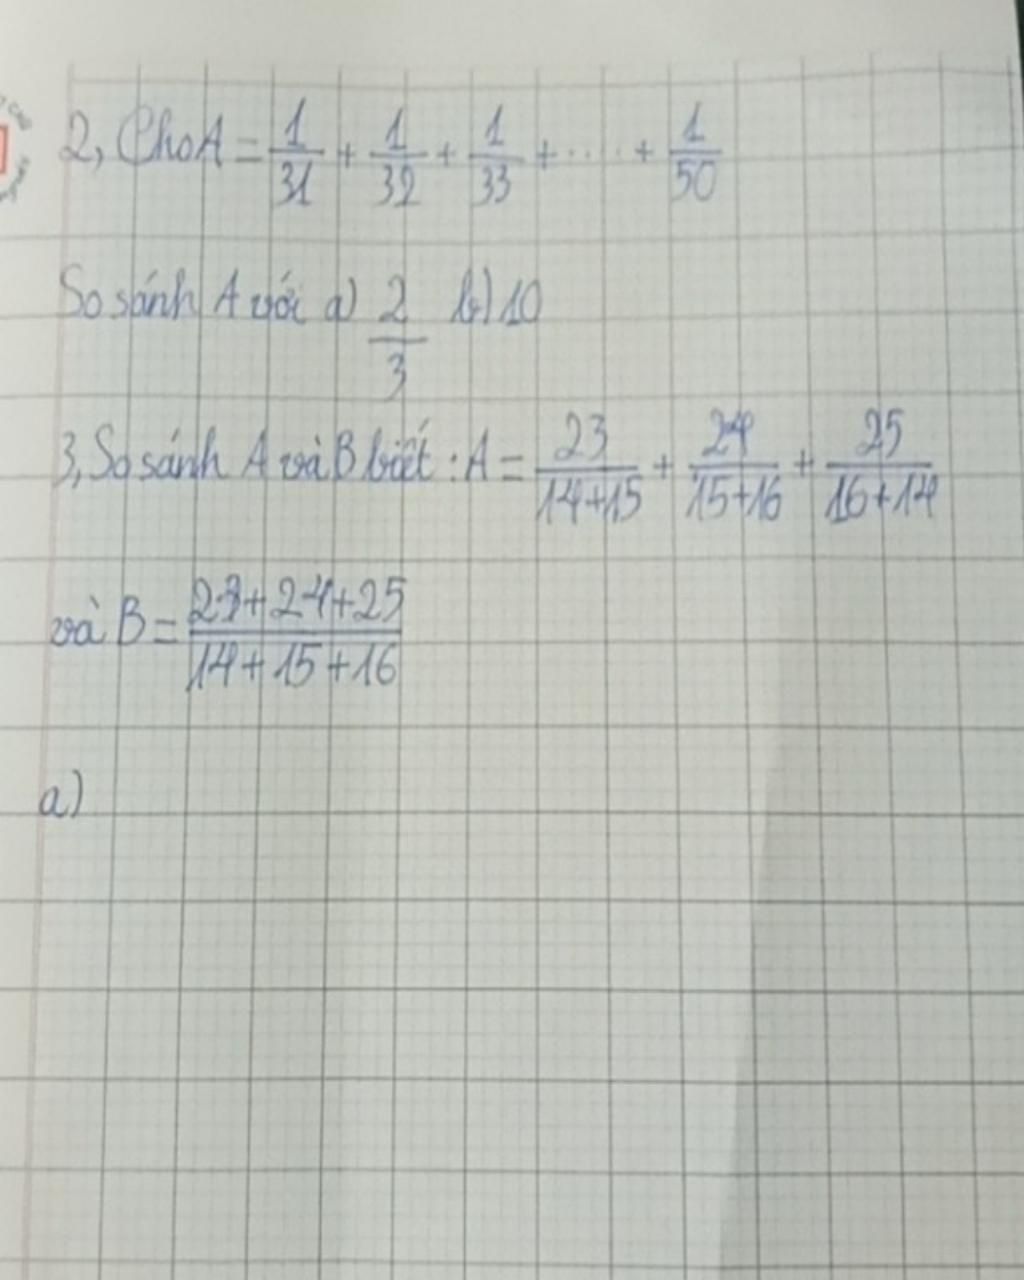 2, Cho A = 1/31 + 1/32 + 1/33 + .... + 1/50
So sánh A với a) 2/3 b) 10
3, So sánh A và B biết : A = 23/14+15 + 24/15+16 + 25/16+14
và B = 23+24+25/14+15+16
a)